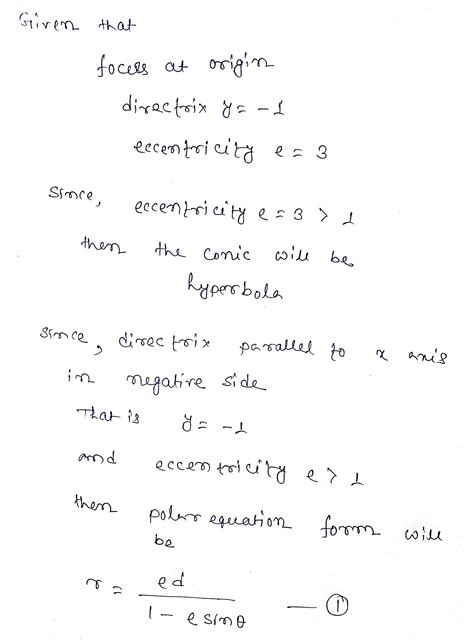 Given that
focus at origin
directrix y = -1
eccentricity e = 3
Since, eccentricity e = 3 > 1
then the conic will be
hyperbola
since, directrix parallel to x axis
in negative side
That is y = -1
and eccentricity e > 1
then polar equation form will
be
r = ed / (1 - e sinθ) — ①